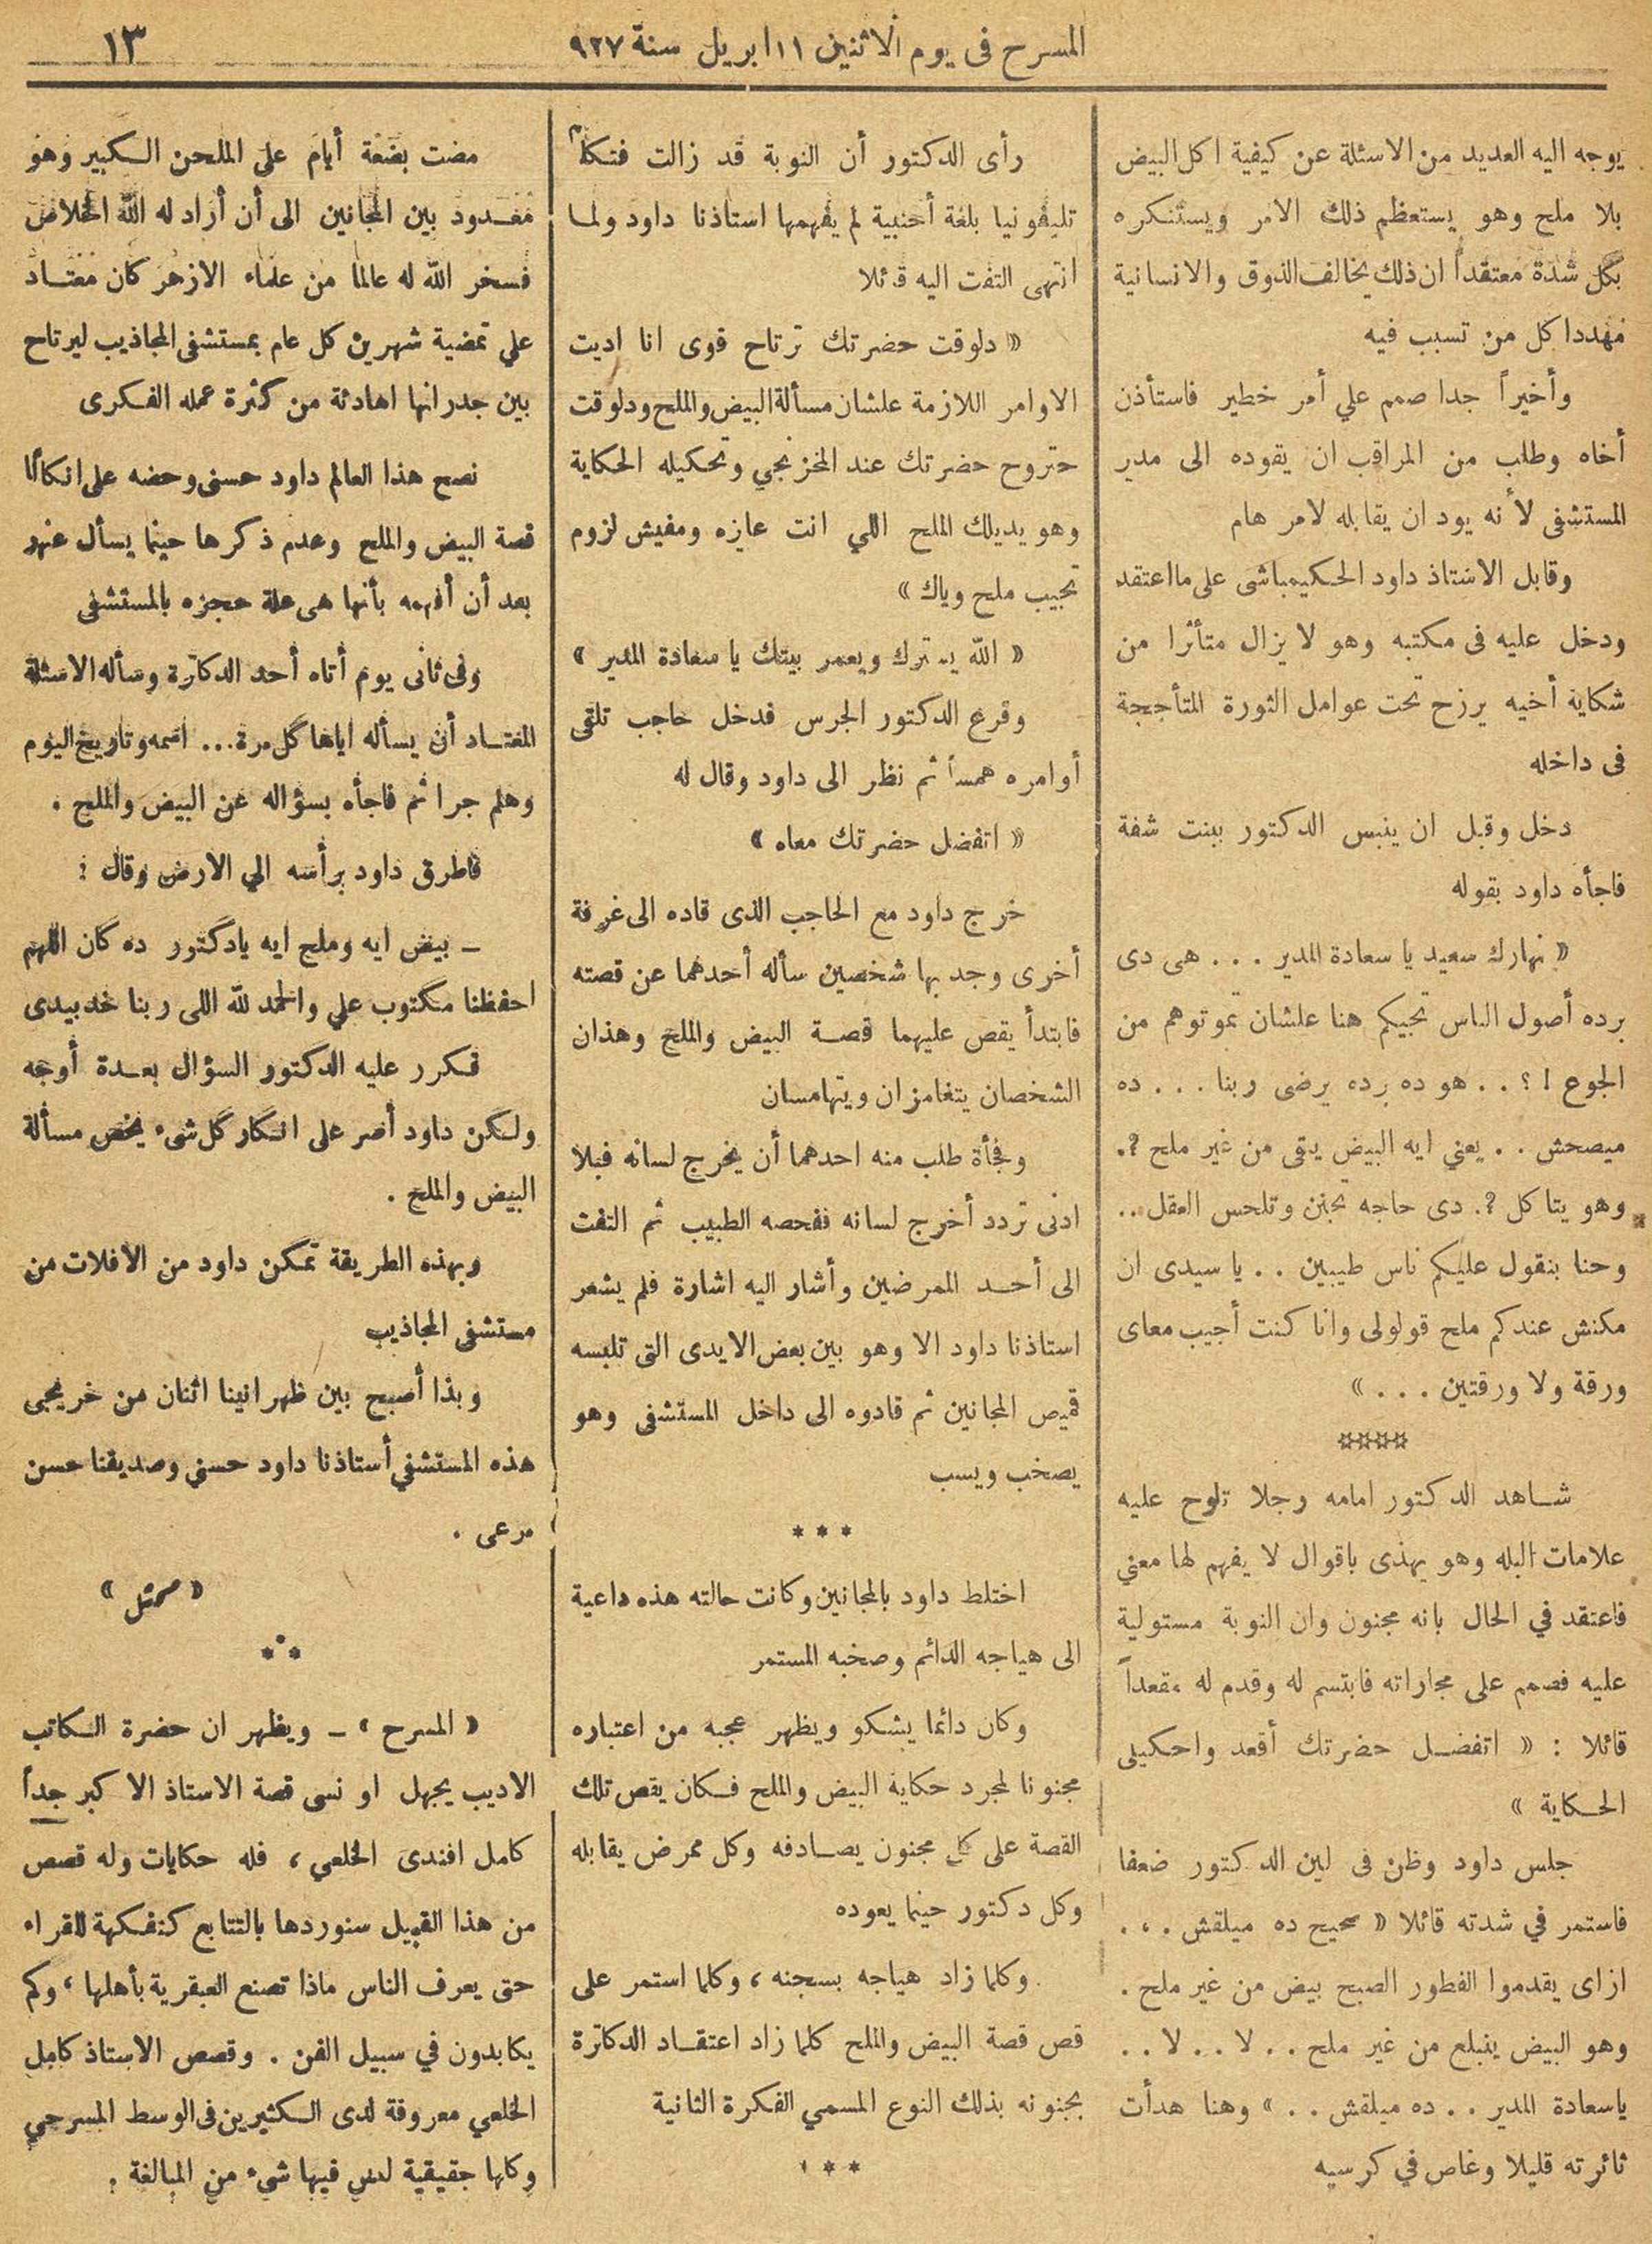 المسرح فى يوم الاثنين ١١ ابريل سنة ٩٢٧
١٣
يوجه اليه العديد من الاسئلة عن كيفية اكل البيض
بلا ملح وهو يستعظم ذلك الامر ويستنكره
بكل شدة معتقداً ان ذلك يخالف الذوق والانسانية
مهددا كل من تسبب فيه
وأخيراً جدا صمم علي أمر خطير فاستأذن
أخاه وطلب من المراقب ان يقوده الى مدير
المستشفى لأنه يود ان يقابله لامر هام
وقابل الاستاذ داود الحكيمباشى على ما اعتقد
ودخل عليه فى مكتبه وهو لا يزال متأثرا من
شكاية أخيه يرزح تحت عوامل الثورة المتأججة
فى داخله
دخل وقبل ان ينبس الدكتور ببنت شفة
فاجأه داود بقوله
« نهارك سعيد يا سعادة المدير . . . هى دى
برده أصول الناس تجيكم هنا علشان تموتوهم من
الجوع ! ؟ . . هو ده برده يرضى ربنا . . . ده
ميصحش . . يعني ايه البيض يبقى من غير ملح ?.
وهو يتاكل ?. دى حاجه تجنن وتلحس العقل ..
وحنا بنقول عليكم ناس طيبين . . يا سيدى ان
مكنش عندكم ملح قولولى وانا كنت أجيب معاى
ورقة ولا ورقتين . . . »
****
شاهد الدكتور امامه رجلا تلوح عليه
علامات البله وهو يهذى باقوال لا يفهم لها معني
فاعتقد في الحال بانه مجنون وان النوبة مستولية
عليه فصمم على مجاراته فابتسم له وقدم له مقعداً
قائلا : « اتفضل حضرتك أقعد واحكيلى
الحكاية »
جلس داود وظن فى لين الدكتور ضعفا
فاستمر في شدته قائلا « صحيح ده ميلقش . . .
ازاى يقدموا الفطور الصبح بيض من غير ملح .
وهو البيض ينبلع من غير ملح . . لا . . لا . .
ياسعادة المدير . . ده ميلقش . . » وهنا هدأت
ثائرته قليلا وغاص في كرسيه
رأى الدكتور أن النوبة قد زالت فتكلم
تليفونيا بلغة أجنبية لم يفهمها استاذنا داود ولما
انتهى التفت اليه قائلا
« دلوقت حضرتك ترتاح قوى انا اديت
الاوامر اللازمة علشان مسألة البيض والملح ودلوقت
حتروح حضرتك عند المخزنجي وتحكيله الحكاية
وهو يديلك الملح اللي انت عايزه ومفيش لزوم
تجيب ملح وياك »
« الله يسترك ويعمر بيتك يا سعادة المدير »
وقرع الدكتور الجرس فدخل حاجب تلقى
أوامره همساً ثم نظر الى داود وقال له
« اتفضل حضرتك معاه »
خرج داود مع الحاجب الذى قاده الى غرفة
أخرى وجد بها شخصين سأله أحدهما عن قصته
فابتدأ يقص عليهما قصة البيض والملح وهذان
الشخصان يتغامزان ويتهامسان
وفجأة طلب منه احدهما أن يخرج لسانه فبلا
ادنى تردد أخرج لسانه ففحصه الطبيب ثم التفت
الى أحد الممرضين وأشار اليه اشارة فلم يشعر
استاذنا داود الا وهو بين بعض الايدى التى تلبسه
قميص المجانين ثم قادوه الى داخل المستشفى وهو
يصخب ويسب
* * *
اختلط داود بالمجانين وكانت حالته هذه داعية
الى هياجه الدائم وصخبه المستمر
وكان دائما يشكو ويظهر عجبه من اعتباره
مجنونا لمجرد حكاية البيض والملح فكان يقص تلك
القصة على كل مجنون يصادفه وكل ممرض يقابله
وكل دكتور حينما يعوده
وكلما زاد هياجه بسجنه ، وكلما استمر على
قص قصة البيض والملح كلما زاد اعتقاد الدكاترة
بجنونه بذلك النوع المسمي الفكرة الثانية
* * *
مضت بضعة أيام على الملحن الكبير وهو
معدود بين المجانين الى أن أراد له الله الخلاص
فسخر الله له عالما من علماء الازهر كان معتاد
علي تمضية شهرين كل عام بمستشفى المجاذيب ليرتاح
بين جدرانها اهادئة من كثرة عمله الفكرى
نصح هذا العالم داود حسنى وحضه على انكار
قصة البيض والملح وعدم ذكرها حينما يسأل عنها
بعد أن أفهمه بأنها هى علة حجزه بالمستشفى
وفى ثانى يوم أتاه أحد الدكاترة وسأله الاسئلة
المعتاد أن يسأله اياها كل مرة... اسمه وتاريخ اليوم
وهلم جرا ثم فاجأه بسؤاله عن البيض والملح .
فاطرق داود برأسه الي الارض وقال :
ـ بيض ايه وملح ايه يادكتور ده كان اللهم
احفظنا مكتوب علي والحمد لله اللى ربنا خد بيدى
فكرر عليه الدكتور السؤال بعدة أوجه
ولكن داود أصر على انكار كل شىء يخص مسألة
البيض والملح .
وبهذه الطريقة تمكن داود من الافلات من
مستشفى المجاذيب
وبذا أصبح بين ظهرانينا اثنان من خريجى
هذه المستشفي أستاذنا داود حسنى وصديقنا حسن
مرعى .
« ممثل »
***
« المسرح » ـ ويظهر ان حضرة الكاتب
الاديب يجهل او نسى قصة الاستاذ الاكبر جداً
كامل افندى الخلعي ، فله حكايات وله قصص
من هذا القبيل سنوردها بالتتابع كنفكهة للقراء
حتى يعرف الناس ماذا تصنع العبقرية بأهلها ، وكم
يكابدون في سبيل الفن . وقصص الاستاذ كامل
الخلعي معروفة لدى الكثيرين فى الوسط المسرحي
وكلها حقيقية ليس فيها شىء من المبالغة .